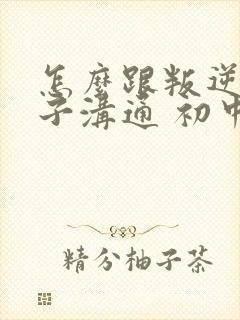 怎麼跟叛逆
子溝通 初中
精分柚子茶